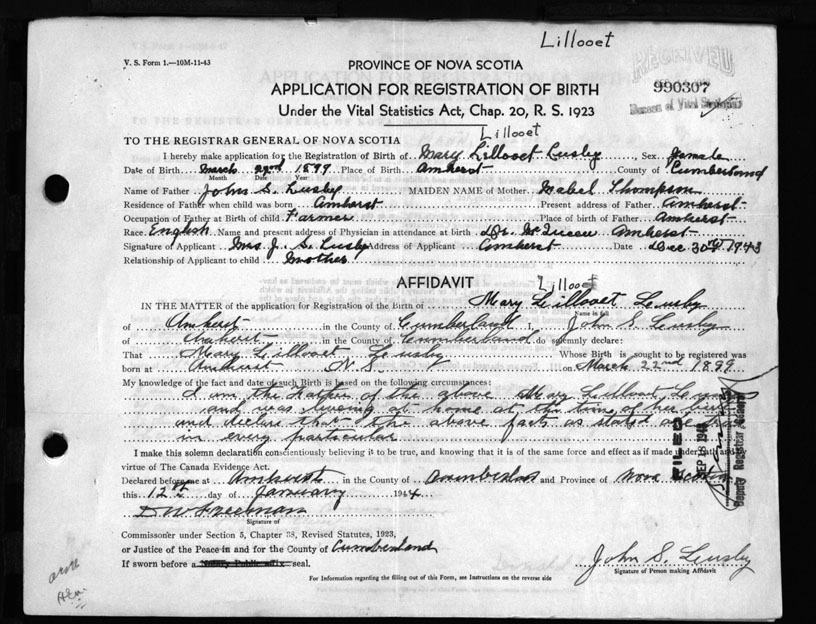 Lillooet
V. S. Form 1.—10M-11-43
PROVINCE OF NOVA SCOTIA
RECEIVED
APPLICATION FOR REGISTRATION OF BIRTH
990307
Under the Vital Statistics Act, Chap. 20, R. S. 1923
Bureau of Vital Statistics
Lillooet
TO THE REGISTRAR GENERAL OF NOVA SCOTIA
I hereby make application for the Registration of Birth of Mary Lillooet Lusby Sex Female
Date of Birth March 22nd 1899 Place of Birth Amherst County of Cumberland
Month Date Year
Name of Father John S. Lusby MAIDEN NAME of Mother Mabel Thompson
Residence of Father when child was born Amherst Present address of Father Amherst
Occupation of Father at Birth of child Farmer Place of birth of Father Amherst
Race English Name and present address of Physician in attendance at birth Dr. McQueen Amherst
Signature of Applicant Mrs. J. S. Lusby Address of Applicant Amherst Date Dec 30th 1943
Relationship of Applicant to child Mother
AFFIDAVIT
Lillooet
IN THE MATTER of the application for Registration of the Birth of Mary Lillooet Lusby
Name in full
of Amherst in the County of Cumberland I, John S. Lusby
of Amherst in the County of Cumberland do solemnly declare:
That Mary Lillooet Lusby Whose Birth is sought to be registered was
born at Amherst N. S. on March 22nd 1899
My knowledge of the fact and date of such Birth is based on the following circumstances:
I am the Father of the above Mary Lillooet Lusby
and was living at home at the time of her birth
and declare that the above facts as stated are true
in every particular
FILED
SEP 18
Deputy Registrar General
I make this solemn declaration conscientiously believing it to be true, and knowing that it is of the same force and effect as if made under oath and by
virtue of The Canada Evidence Act.
Declared before me at Amherst in the County of Cumberland and Province of Nova Scotia
this 12th day of January 1944
D W Freeman
Signature of
Commissoner under Section 5, Chapter 38, Revised Statutes, 1923,
or Justice of the Peace in and for the County of Cumberland
If sworn before a Notary Public affix seal.
John S. Lusby
Signature of Person making Affidavit
For Information regarding the filling out of this Form, see Instructions on the reverse side